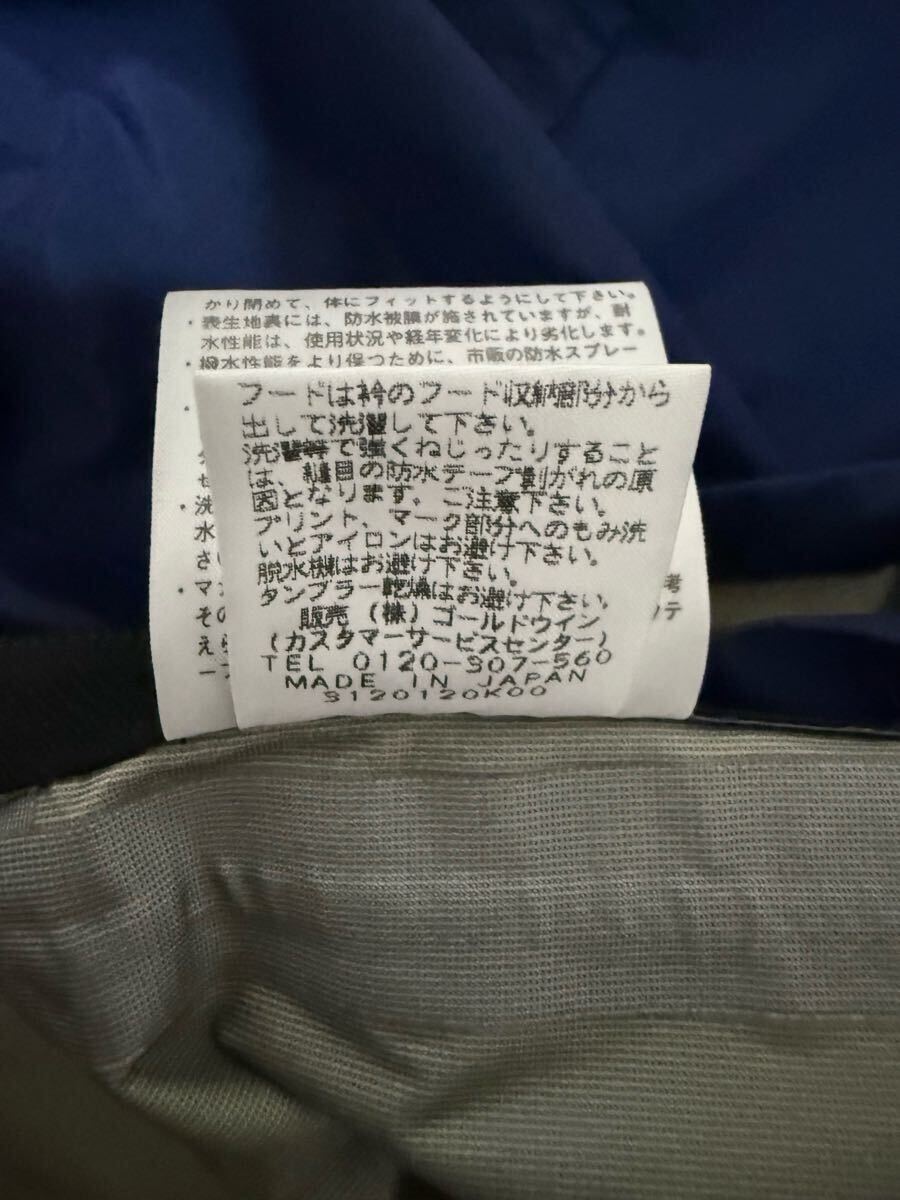 かり閉めて、体にフィットするようにして下さい。
・表生地裏には、防水被膜が施されていますが、耐
水性能は、使用状況や経年変化により劣化します。
・撥水性能をより保つために、市販の防水スプレー
フードは衿のフード収納部分から
出して洗濯して下さい。
洗濯等で強くねじったりすること
は、縫目の防水テープ剥がれの原
因となります。ご注意下さい。
プリント、マーク部分へのもみ洗
いとアイロンはお避け下さい。
脱水機はお避け下さい。
タンブラー乾燥はお避け下さい。
販売 (株) ゴールドウイン
(カスタマーサービスセンター)
TEL 0120-307-560
MADE IN JAPAN
S120120K00
・洗
水
さい
・マ
考
その
テ
えら